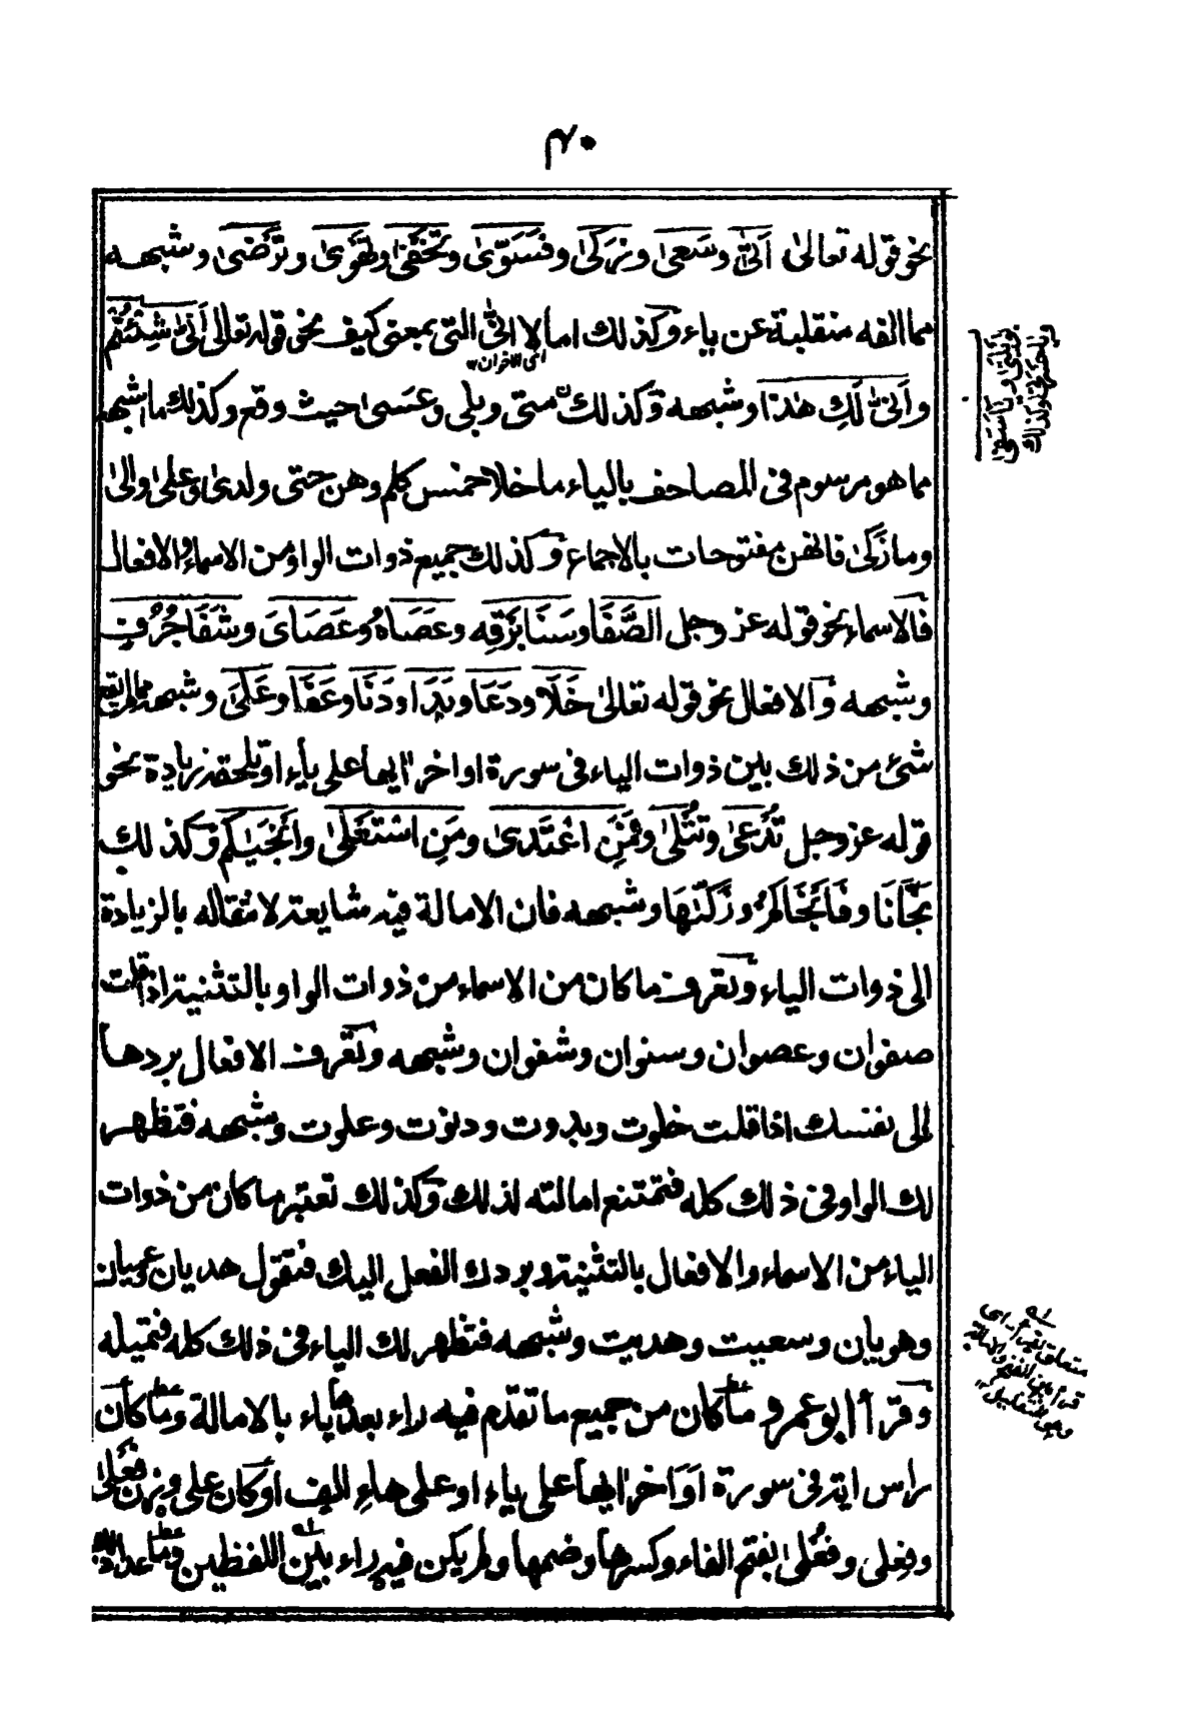 ٤٠
نحو قوله تعالى أَتَىٰ وسَعىٰ وزكىٰ وفسَوّىٰ وتخفىٰ وتَهْوىٰ وتَرْضىٰ وشبهه
مما الفه منقلبة عن ياء وكذلك امالا انّٰى التى بمعنى كيف نحو قوله تعالى انّٰى شِئْتُمْ
اى الاخوان
وأَنّٰى لَكِ هٰذا وشبهه وكذلك متى وبلى وعَسىٰ حيث وقع وكذلك ما اشبهه
مما هو مرسوم فى المصاحف بالياء ما خلا خمس كلم وهن حتى ولدىٰ وعلىٰ والىٰ
وما زَكىٰ فانهن مفتوحات بالاجماع وكذلك جميع ذوات الواو من الاسماء والافعال
فالاسماء نحو قوله عز وجل الصَّفَا وسَنَا بَرْقِه وعَصَاهُ وعَصَاىَ وشَفَا جُرُفٍ
وشبهه والافعال نحو قوله تعالىٰ خَلَا ودَعَا وبَدَا ودَنَا وعَفَا وعَلَىٰ وشبهه مما لم يقع
شئ من ذلك بين ذوات الياء فى سورة اواخر ايها على ياء او تلحقه زيادة نحو
قوله عز وجل تُدْعىٰ وتُتْلىٰ وفَمَنِ اعْتَدىٰ ومَنِ اسْتَعْلىٰ وانجَيٰكم وكذلك
نَجَّانَا وفَاَنْجَاكُمْ وزَكّٰهَا وشبهه فان الامالة فيه شايعة لانتقاله بالزيادة
الى ذوات الياء وتعرف ما كان من الاسماء من ذوات الواو بالتثنية اذا قلت
صفوان وعصوان وسنوان وشفوان وشبهه وتعرف الافعال بردها
الى نفسك اذا قلت خلوت وبدوت ودنوت وعلوت وشبهه فتظهر
لك الواو فى ذلك كله فتمتنع امالته لذلك وكذلك تعتبر ما كان من ذوات
الياء من الاسماء والافعال بالتثنية وبردك الفعل اليك فتقول هديان وعميان
وهويان وسعيت وهديت وشبهه فتظهر لك الياء فى ذلك كله فتميله
وقرأ ابو عمرو ما كان من جميع ما تقدم فيه راء بعدها ياء بالامالة وما كان
راس اية فى سورة اواخر ايها على ياء او على هاء الف او كان على وزن فَعْلىٰ
وفِعلىٰ وفُعْلىٰ بفتح الفاء وكسرها وضمها ولم يكن فيه راء بين اللفظين وما عدا ذلك